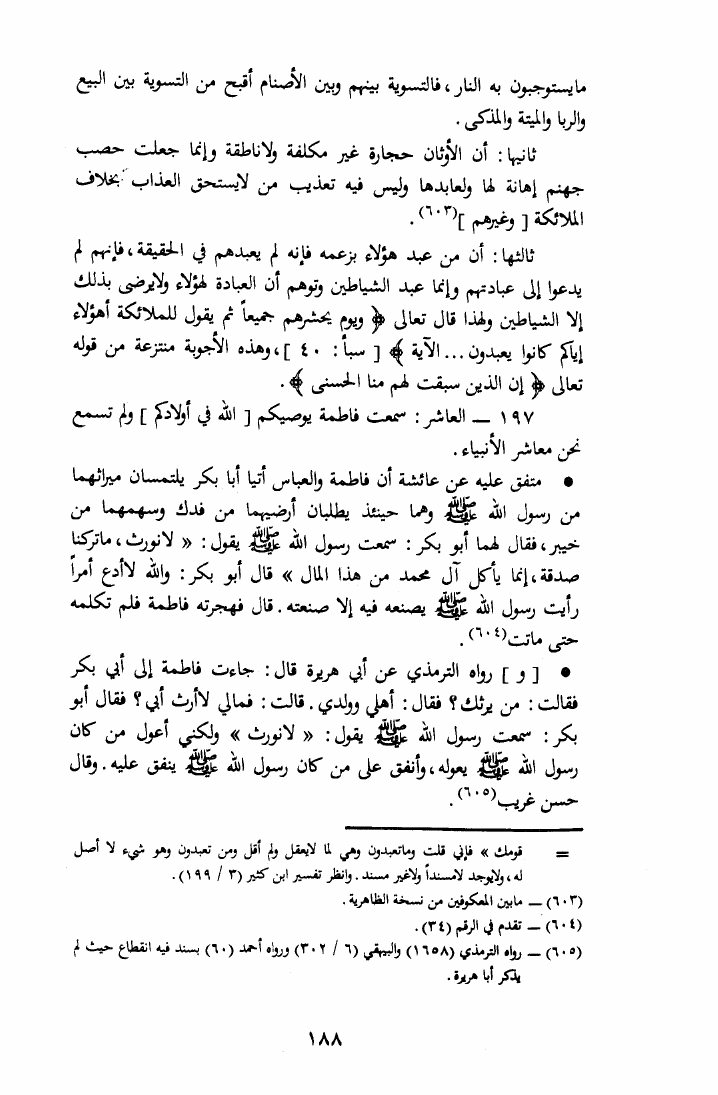 مايستوجبون به النار ، فالتسوية بينهم وبين الأصنام أقبح من التسوية بين البيع
والربا والميتة والمذكى .
ثانيها : أن الأوثان حجارة غير مكلفة ولاناطقة وإنما جعلت حصب
جهنم إهانة لها ولعابدها وليس فيه تعذيب من لايستحق العذاب بخلاف
الملائكة [ وغيرهم ](٦٠٣) .
ثالثها : أن من عبد هؤلاء بزعمه فإنه لم يعبدهم في الحقيقة ، فإنهم لم
يدعوا إلى عبادتهم وإنما عبد الشياطين وتوهم أن العبادة لهؤلاء ولايرضى بذلك
إلا الشياطين ولهذا قال تعالى ﴿ ويوم يحشرهم جميعاً ثم يقول للملائكة أهؤلاء
إياكم كانوا يعبدون ... الآية ﴾ [ سبأ : ٤٠ ] ، وهذه الأجوبة منتزعة من قوله
تعالى ﴿ إن الذين سبقت لهم منا الحسنى ﴾ .
١٩٧ — العاشر : سمعت فاطمة يوصيكم [ الله في أولادكم ] ولم تسمع
نحن معاشر الأنبياء .
• متفق عليه عن عائشة أن فاطمة والعباس أتيا أبا بكر يلتمسان ميراثهما
من رسول الله ﷺ وهما حينئذ يطلبان أرضيهما من فدك وسهمهما من
خيبر ، فقال لهما أبو بكر : سمعت رسول الله ﷺ يقول : « لانورث ، ماتركنا
صدقة ، إنما يأكل آل محمد من هذا المال » قال أبو بكر : والله لاأدع أمراً
رأيت رسول الله ﷺ يصنعه فيه إلا صنعته . قال فهجرته فاطمة فلم تكلمه
حتى ماتت(٦٠٤) .
• [ و ] رواه الترمذي عن أبي هريرة قال : جاءت فاطمة إلى أبي بكر
فقالت : من يرثك ؟ فقال : أهلي وولدي . قالت : فمالي لاأرث أبي ؟ فقال أبو
بكر : سمعت رسول الله ﷺ يقول : « لانورث » ولكني أعول من كان
رسول الله ﷺ يعوله ، وأنفق على من كان رسول الله ﷺ ينفق عليه . وقال
حسن غريب(٦٠٥) .
= قومك » فإني قلت وماتعبدون وهي لما لايعقل ولم أقل ومن تعبدون وهو شيء لا أصل
له ، ولايوجد لامسنداً ولاغير مسند . وانظر تفسير ابن كثير (٣ / ١٩٩) .
(٦٠٣) — مابين المعكوفين من نسخة الظاهرية .
(٦٠٤) — تقدم في الرقم (٣٤) .
(٦٠٥) — رواه الترمذي (١٦٥٨) والبيهقي (٦ / ٣٠٢) ورواه أحمد (٦٠) بسند فيه انقطاع حيث لم
يذكر أبا هريرة .
١٨٨